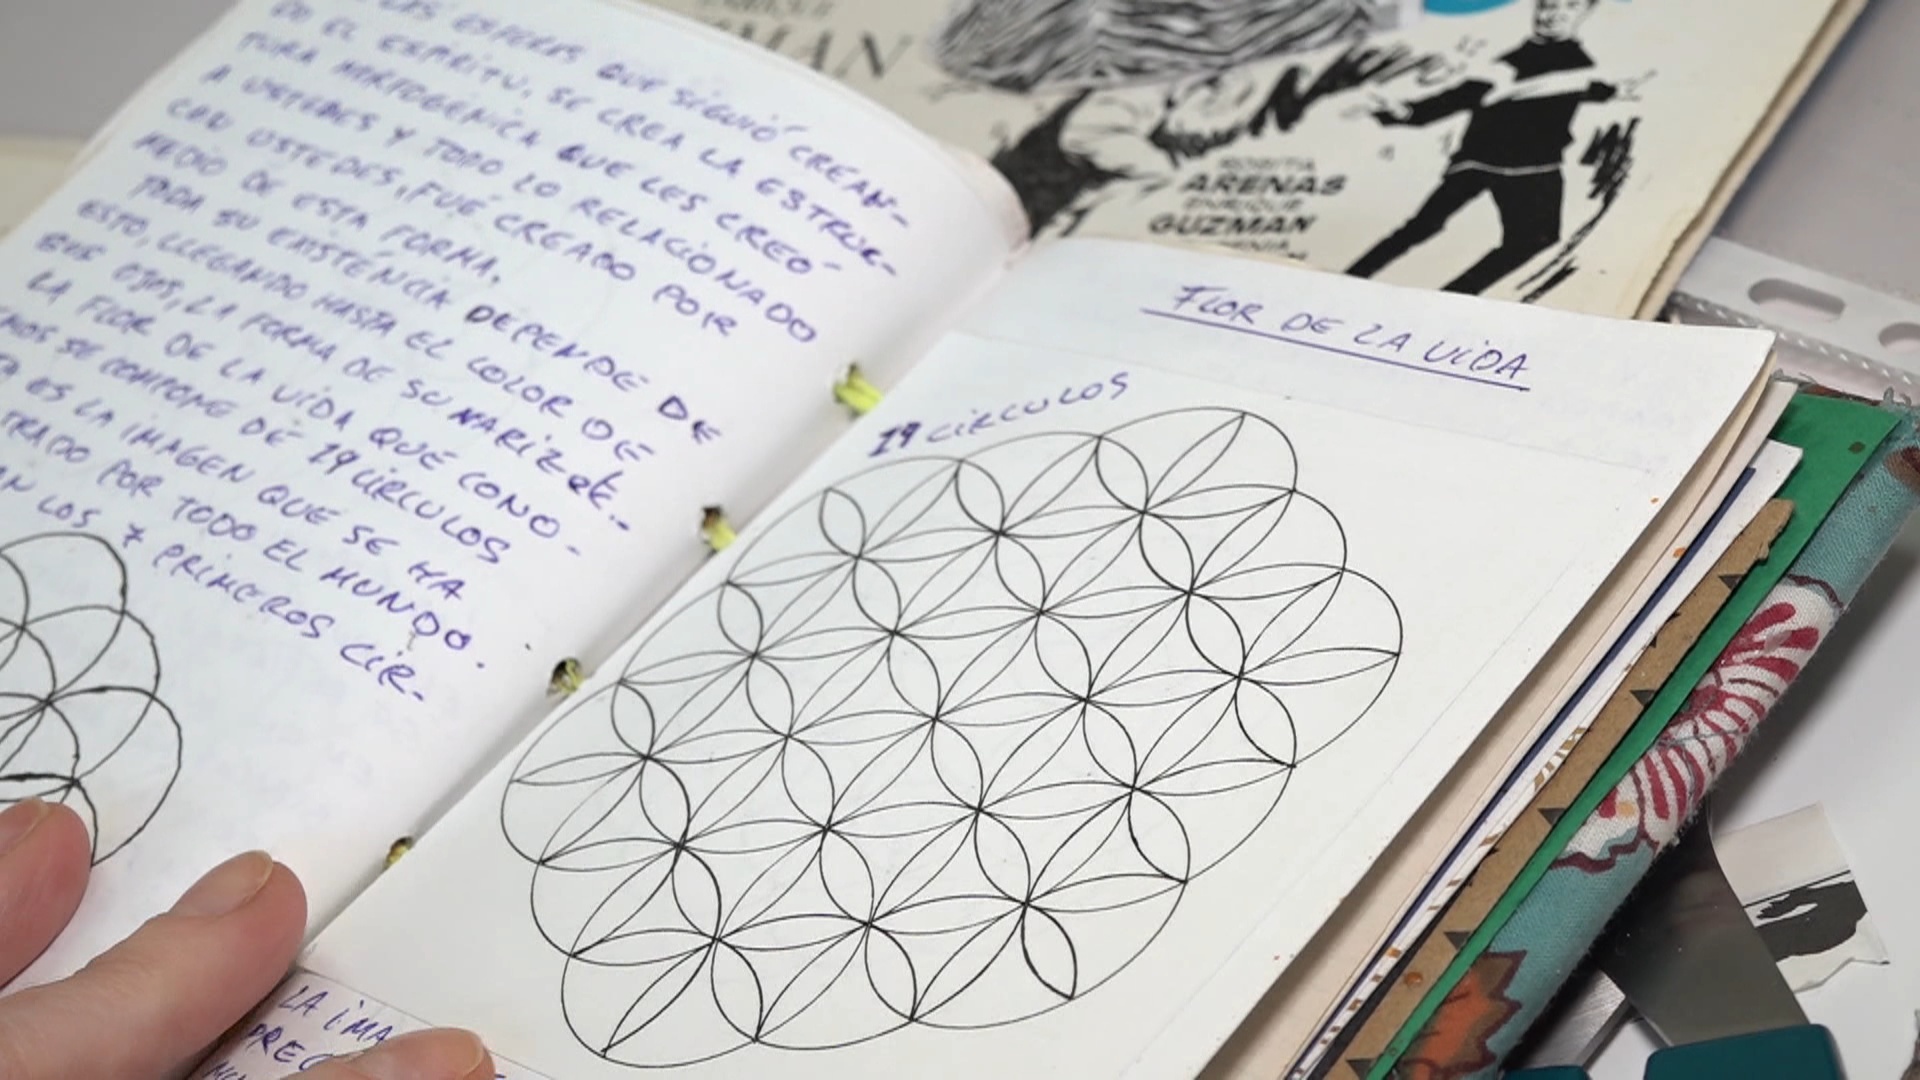 LAS ESFERAS QUE SIGUIÓ CREAN-
DO EL ESPÍRITU, SE CREA LA ESTRUC-
TURA MORFOGENICA QUE LES CREO-
A USTEDES Y TODO LO RELACIONADO
CON USTEDES, FUÉ CREADO POR
MEDIO DE ESTA FORMA.
TODA SU EXISTENCIA DEPENDE DE
ESTO, LLEGANDO HASTA EL COLOR DE
SUS OJOS, LA FORMA DE SU NARIZ etc..
LA FLOR DE LA VIDA QUE CONO-
EMOS SE COMPONE DE 19 CIRCULOS
ES LA IMAGEN QUE SE HA
TRADO POR TODO EL MUNDO.
AN LOS 7 PRIMEROS CIR-
FLOR DE LA VIDA
19 CIRCULOS
LA IMA
PREC
MAN
ROSITA
ARENAS
ENRIQUE
GUZMAN